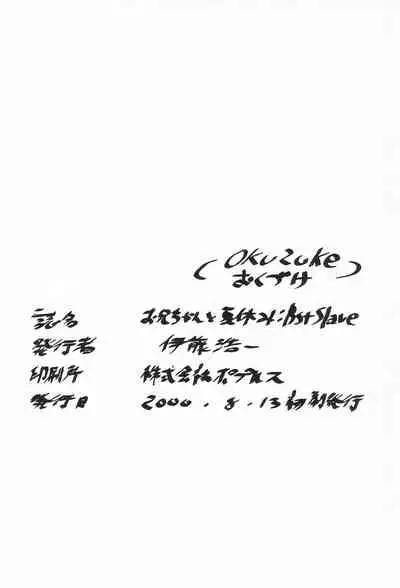 (Okuzuke
おくづけ)
誌名 お兄ちゃんと夏休み:
発行者 伊藤浩一
印刷所 株式会社ポプルス
発行日 2000.8.13初刷発行